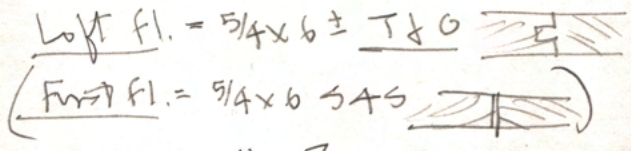 Loft Fl. = 5/4 x 6 ± T & G
(First Fl. = 5/4 x 6 S4S)